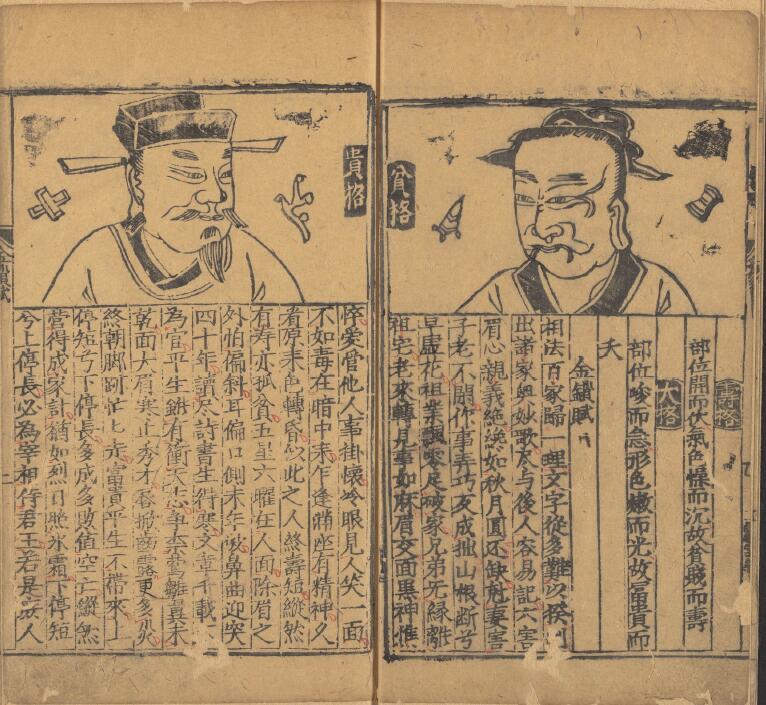 貧格
壽格
部位開而伏氣色慢而沉故貧賤而壽
夭格
部位峻而急形色嫩而光故富貴而
夭
金鎖賦
相法百家歸一理文字從多難以揆刪
出諸家奧妙歌尽与後人容易記六害
眉心親義絶縱如秋月圓还缺尅妻害
子老不閒作事弄巧反成拙山根断兮
早虚花祖業飄零足破家兄弟无緣離
祖宅老來轉見事如麻眉交面黒神憔
貴格
悴爱管他人事掛懷冷眼見人笑一面
不如毒在暗中来乍逢滿座有精神久
看原来色轉昏似此之人終壽短縱然
有寿亦孤貧五星六曜在人面除眉之
外怕偏斜耳偏口側末年破鼻曲迎突
四十年讀尽詩書生得寒文章千載
為官平生雖有衝天志争柰雛翼未
乾面大眉寒止秀才唇掀齒露更多災
終朝脚跡忙忙走富貴平生不帶來上
停短兮下停長多成多敗值空亡縱然
營得成家計猶如烈日照氷霜下停短
兮上停長必為宰相侍君王若是庶人